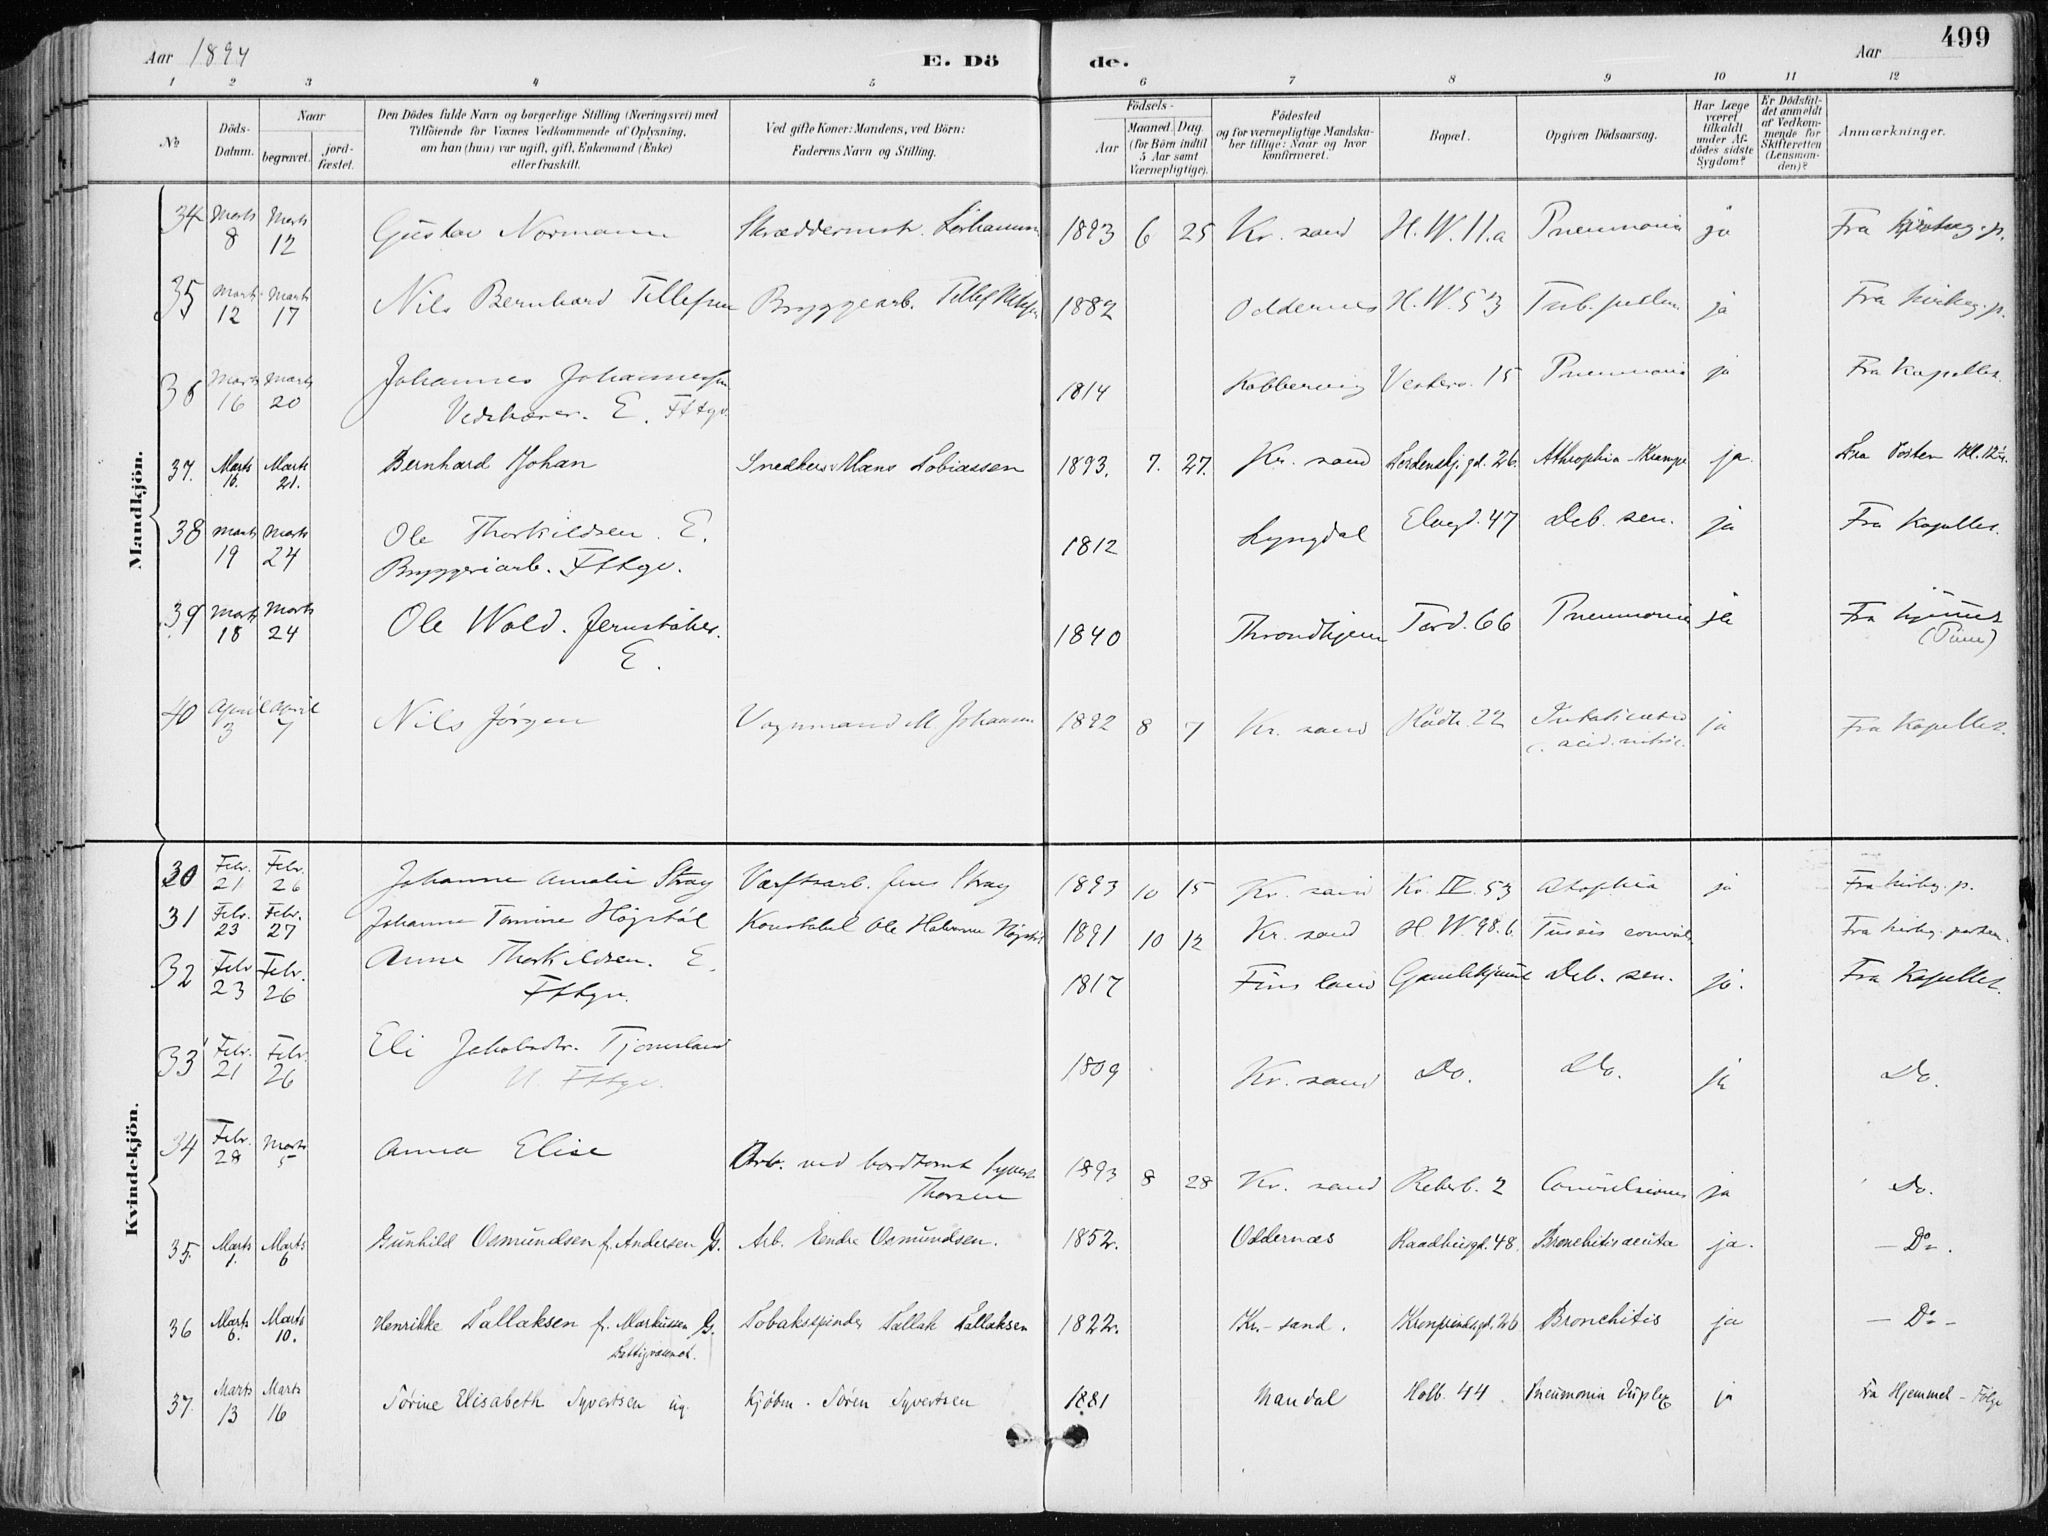 Aar 1894 E. Dö de. Aar 499
1 2 3 4 5 6 7 8 9 10 11 12
No
Döds-Datum.
Naar
begravet. jord-fæstet.
Den Dödes fulde Navn og borgerlige Stilling (Næringsvei) med
Tilföiende for Voxnes Vedkommende af Oplysning,
om han (hun) var ugift, gift, Enkemand (Enke)
eller fraskilt.
Ved gifte Koner: Mandens, ved Börn:
Faderens Navn og Stilling.
Födsels-
Aar Maaned. Dag.
(for Börn indtil
5 Aar samt
Værnepligtige).
Födested
og for værnepligtige Mandska-
ber tillige: Naar og hvor
konfirmeret.
Bopæl.
Opgiven Dödsaarsag.
Har Læge
været
tilkaldt
under Af-
dödes sidste
Sygdom?
Er Dödsfal-
det anmeldt
af Vedkom-
mende for
Skifteretten
(Lensman-
den)?
Anmærkninger.
Mandkjön.
34 Marts 8 Marts 12 Gustav Normann Skræddermstr. 1893 6 25 Kr. sand H.W. 11.a Pneumonia ja Fra
35 Marts 12 Marts 17 Nils Bernhard Tellefsen Bryggearb. Tellef 1882 Oddernes H.W. 53 Tub. pulm. ja Fra kirkeg. p.
36 Marts 16 Marts 20 Johannes Johannessen 1814 Kobbervig Vesterv. 15 Pneumonia ja Fra Kapellet.
Vedskærer. E. Fttgv.
37. Marts 16. Marts 21. Bernhard Johan Snedker Mans Tobiassen 1893. 7. 27. Kr. sand Tordenskj.gd. 26. Athrophia - Krampe ja. Fra Porten Kl. 12½
38 Marts 19 Marts 24 Ole Thorkildsen. E. 1812 Lyngdal Elvegd. 47 Deb. sen. ja Fra Kapellet.
Bryggeriarb. Fttgv.
39 Marts 18 Marts 24 Ole Wold. Jernstøber. 1840 Throndhjem Tord. 66 Pneumonia ja Fra hjemmet
E.
40 April 3 April 7 Nils Jørgen Vognmand M Johansen 1892 8 7 Kr. sand Rådh. 22 Intoxicatio ja Fra Kapellet.
c. acid. nitric.
Kvindekjön.
30 Febr. 21 Febr. 26 Johanne Amalie Stray Værftsarb. Jens Stray 1893 10 15 Kr. sand Kv. IV. 53 Atrophia ja Fra kirkeg. p.
31 Febr. 23 Febr. 27 Johanne Tomine Högstöl Konstabel Ole Halvorsen Högstöl 1891 10 12 Kr. sand H.W. 98.b. Tussis convuls. Fra kirkeg. porten.
32 Febr. 23 Febr. 26 Anne Thorkildsen. E. 1817 Finsland Gamlehjemmet Deb. sen. ja. Fra Kapellet.
Fttgv.
33 Febr. 21 Febr. 26 Eli Jakobsdtr. Tjomsland 1809 Kr. sand Do. Do. ja Do.
U. Fttgv.
34 Febr. 28 Marts 5 Anna Elise Arb. ved bordtomt Syvert 1893 8 28 Kr. sand Reberb. 2 Convulsiones ja Do.
Thorsen
35. Marts 1. Marts 6 Gunhild Osmundsen f. Andersen G. Arb. Endre Osmundsen. 1852. Oddernæs Raadhusgd. 48. Bronchitis acuta ja. - Do -
36 Marts 6. Marts 10. Henrikke Tallaksen f. Markussen G. Tobaksspinder Tallak Tallaksen 1822. Kr. - sand. Kronprindsgd. 26 Bronchitis ja - Do -
Fattigvæsenet.
37. Marts 13 Marts 16 Sørine Elisabeth Syvertsen ug. Kjøbm. Søren Syvertsen 1881 Mandal Holb. 44 Pneumonia Duplex ja Fra Hjemmet - Følge